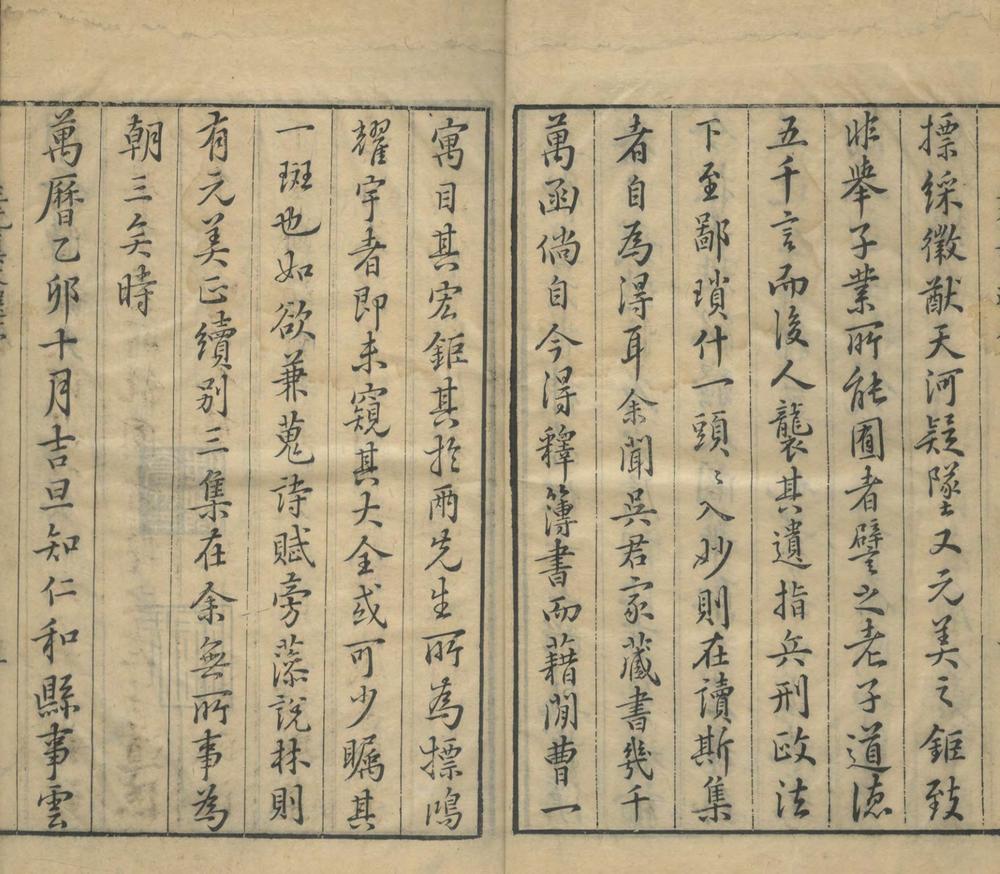 摽綵徽猷天河疑墜又元美之鉅致
非舉子業所能囿者譬之老子道德
五千言而後人襲其遺指兵刑政法
下至鄙瑣什一頭〻入妙則在讀斯集
者自為得耳余聞吳君家藏書幾千
萬函倘自今得釋簿書而藉閒曹一
寓目其宏鉅其於兩先生所為摽鴻
耀宇者即未窺其大全或可少矚其
一斑也如欲兼蒐詩賦旁蒐說林則
有元美正續別三集在余無所事為
朝三矣時
萬曆乙卯十月吉旦知仁和縣事雲